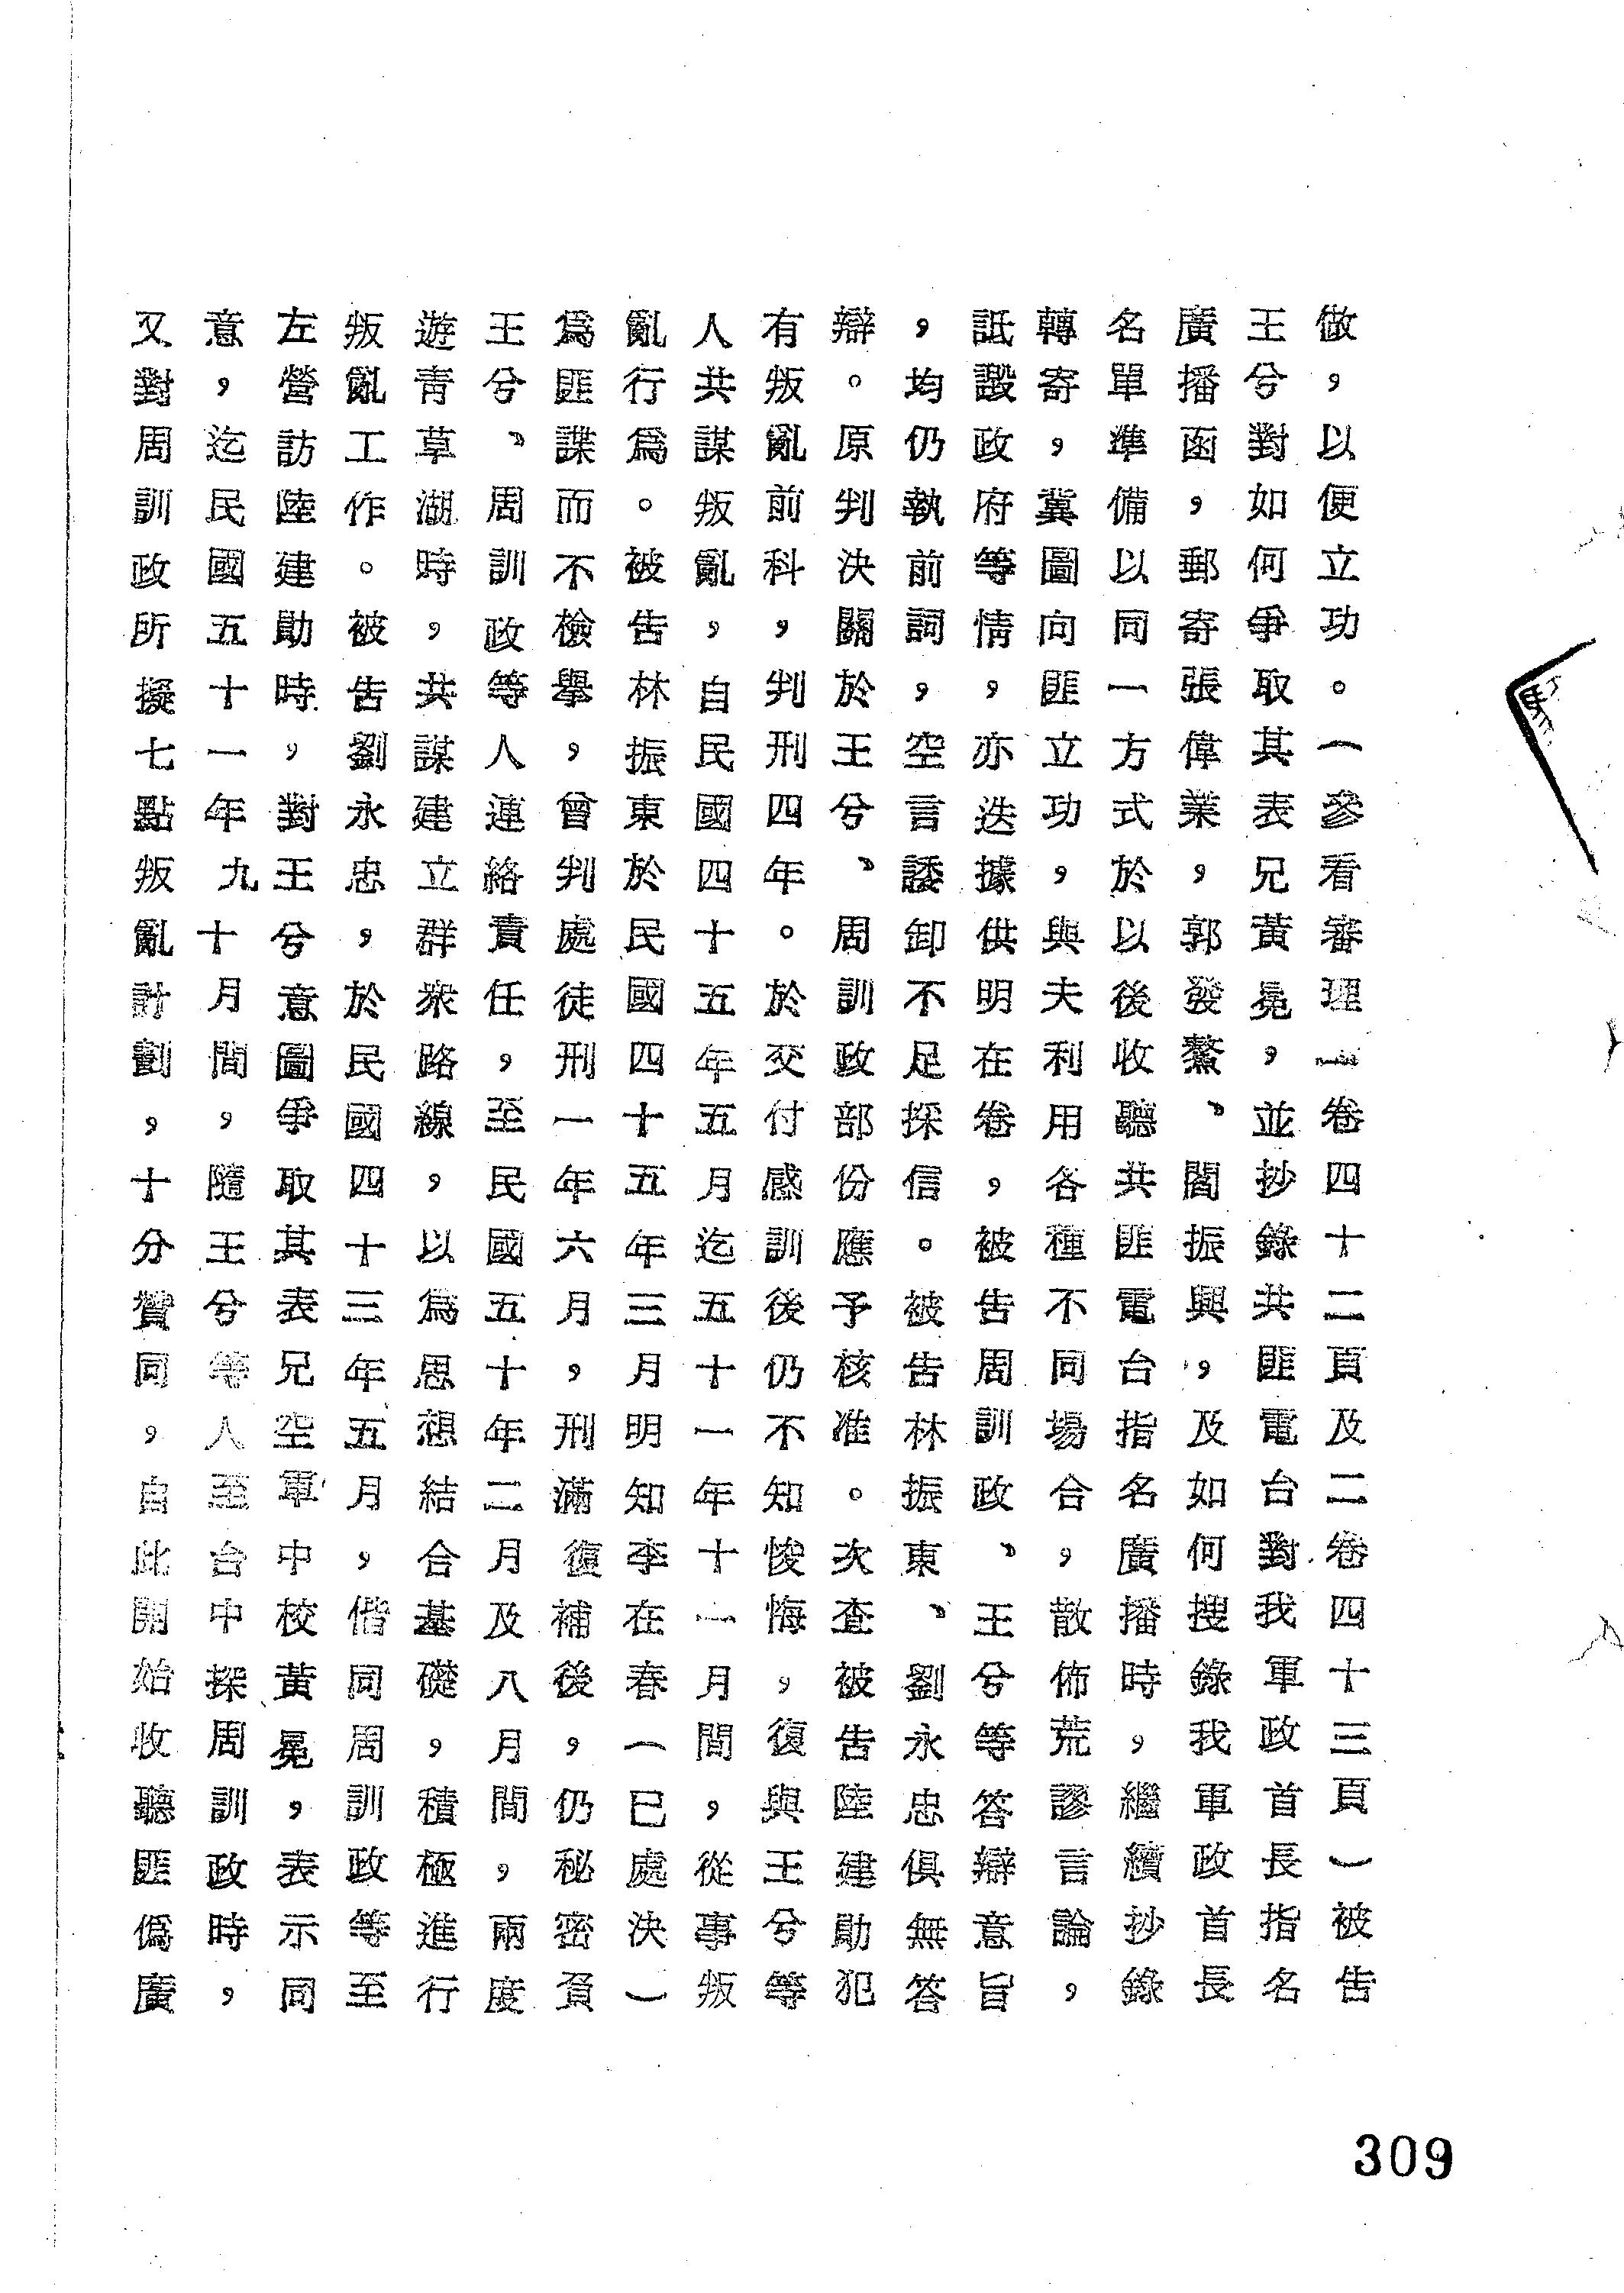 做，以便立功。（參看審理一卷四十二頁及二卷四十三頁）被告
王兮對如何爭取其表兄黃晃，並抄錄共匪電台對我軍政首長指名
廣播函，郵寄張偉業，郭發鰲、閻振興，及如何搜錄我軍政首長
名單準備以同一方式於以後收聽共匪電台指名廣播時，繼續抄錄
轉寄，冀圖向匪立功，與夫利用各種不同場合，散佈荒謬言論，
詆譭政府等情，亦迭據供明在卷，被告周訓政、王兮等答辯意旨
，均仍執前詞，空言諉卸不足採信。被告林振東、劉永忠俱無答
辯。原判決關於王兮、周訓政部份應予核准。次查被告陸建勛犯
有叛亂前科，判刑四年。於交付感訓後仍不知悛悔，復與王兮等
人共謀叛亂，自民國四十五年五月迄五十一年十一月間，從事叛
亂行為。被告林振東於民國四十五年三月明知李在春（已處決）
為匪諜而不檢舉，曾判處徒刑一年六月，刑滿復補後，仍秘密負
王兮、周訓政等人連絡責任，至民國五十年二月及八月間，兩度
遊青草湖時，共謀建立群眾路線，以為思想結合基礎，積極進行
叛亂工作。被告劉永忠，於民國四十三年五月，偕同周訓政等至
左營訪陸建勛時，對王兮意圖爭取其表兄空軍中校黃晃，表示同
意，迄民國五十一年九十月間，隨王兮等人至台中探周訓政時，
又對周訓政所擬七點叛亂計劃，十分贊同，自此開始收聽匪偽廣
309